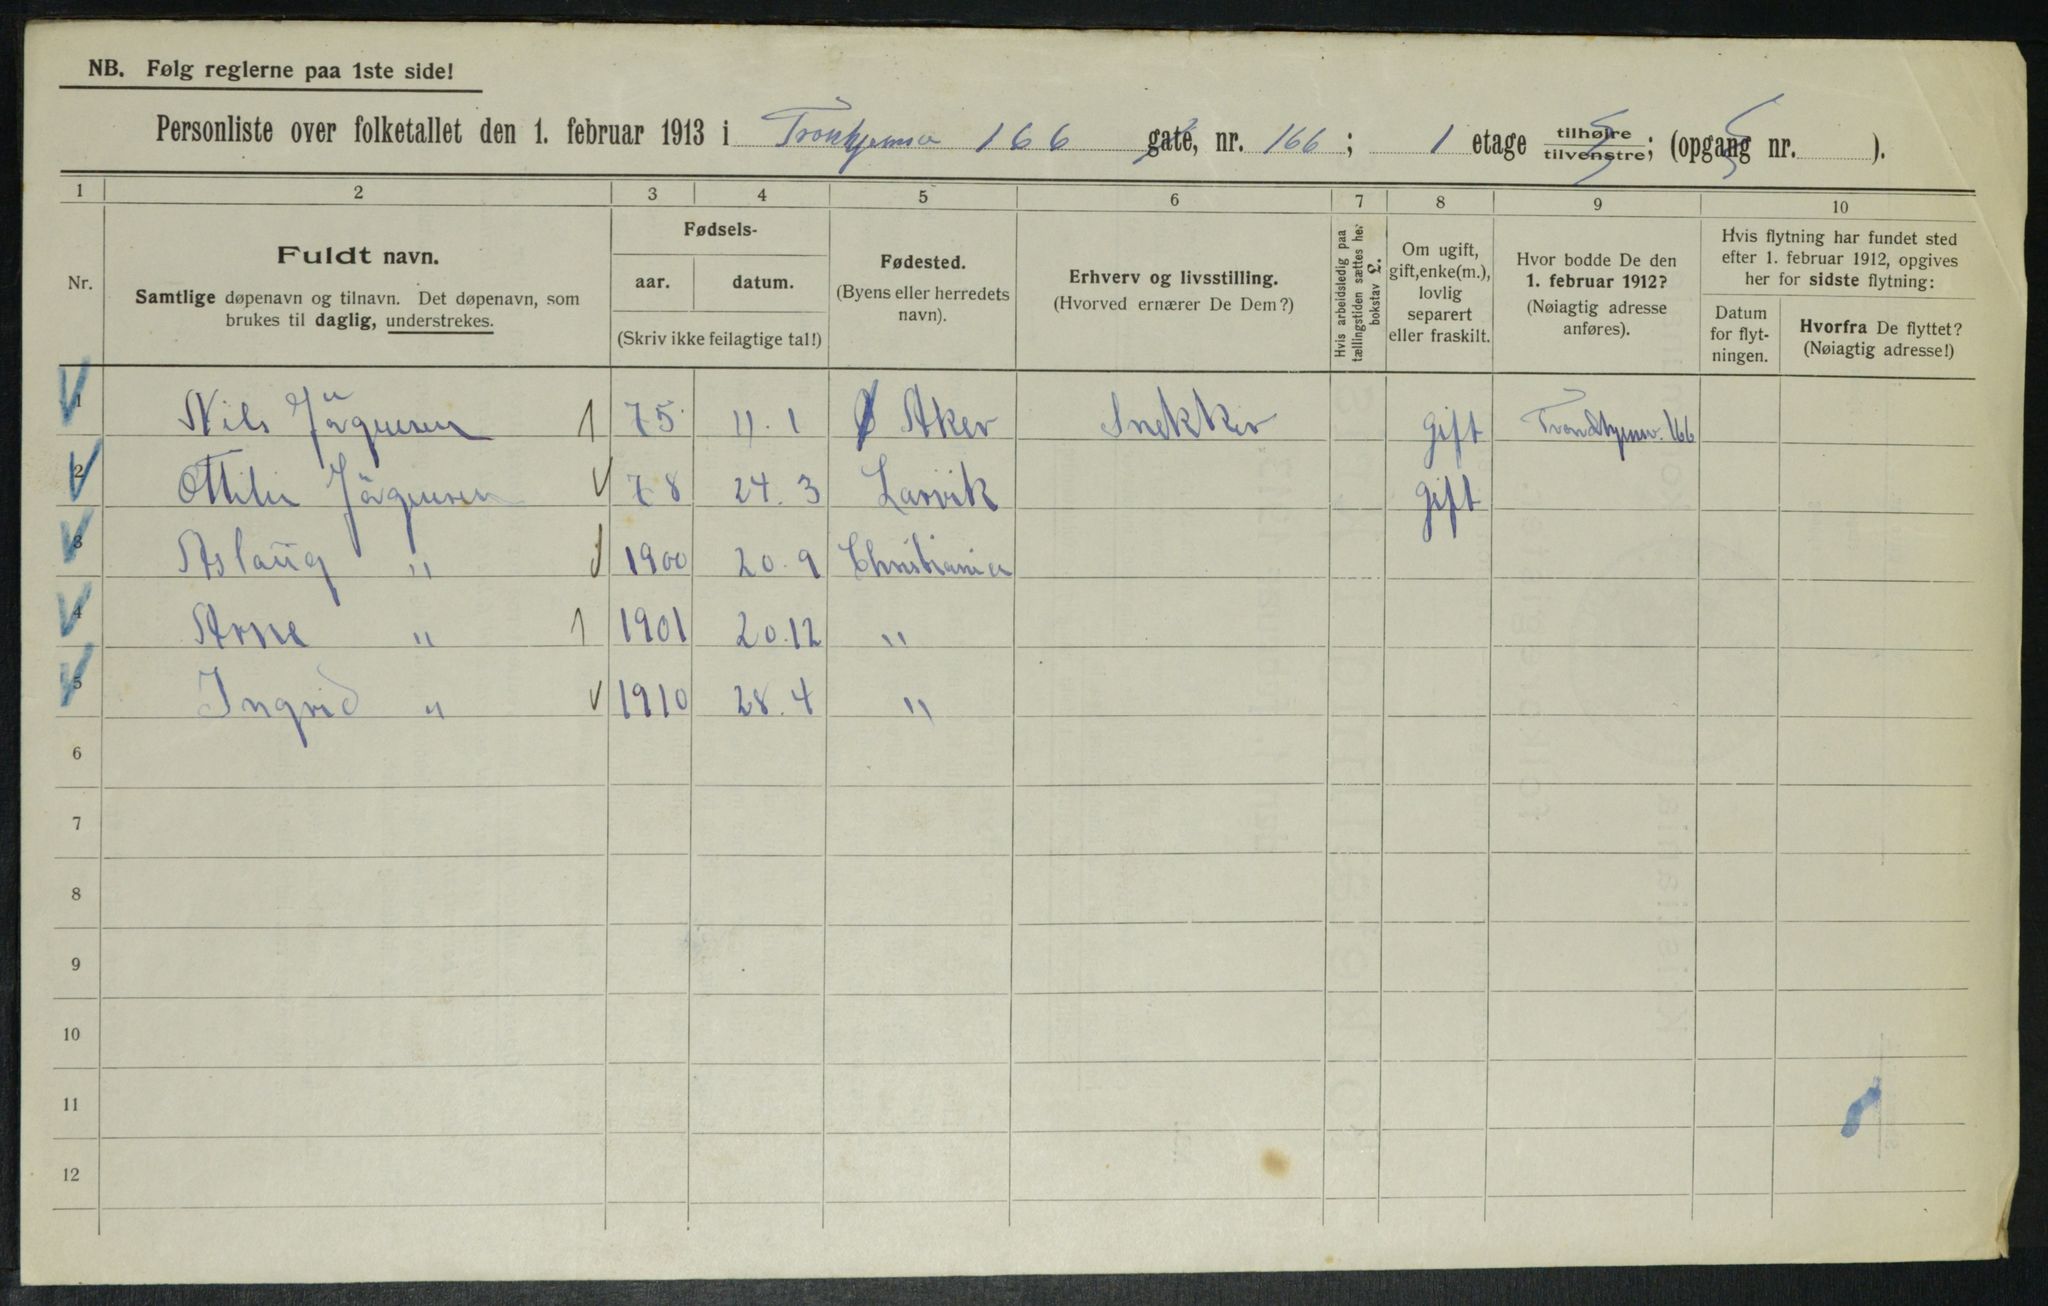 NB. Følg reglerne paa 1ste side!
Personliste over folketallet den 1. februar 1913 i 166 gate, nr. 166; 1 etage tilhøire tilvenstre; (opgang nr. ).
1 2 3 4 5 6 7 8 9 10
Nr.
Fuldt navn.
Samtlige døpenavn og tilnavn. Det døpenavn, som
brukes til daglig, understrekes.
Fødsels-
aar. datum.
(Skriv ikke feilagtige tal!)
Fødested.
(Byens eller herredets
navn).
Erhverv og livsstilling.
(Hvorved ernærer De Dem?)
Hvis arbeidsledig paa
tællingstiden sættes her
bokstav L.
Om ugift,
gift, enke(m.),
lovlig
separert
eller fraskilt.
Hvor bodde De den
1. februar 1912?
(Nøiagtig adresse
anføres).
Hvis flytning har fundet sted
efter 1. februar 1912, opgives
her for sidste flytning:
Datum
for flyt-
ningen.
Hvorfra De flyttet?
(Nøiagtig adresse!)
1 Nils 75 11.1 Aker Snekker gift 166
2 78 24.3 Larvik gift
3 Aslaug " 1900 20.9 Christiania
4 Arne " 1901 20.12 "
5 Ingrid " 1910 28.4 "
6
7
8
9
10
11
12